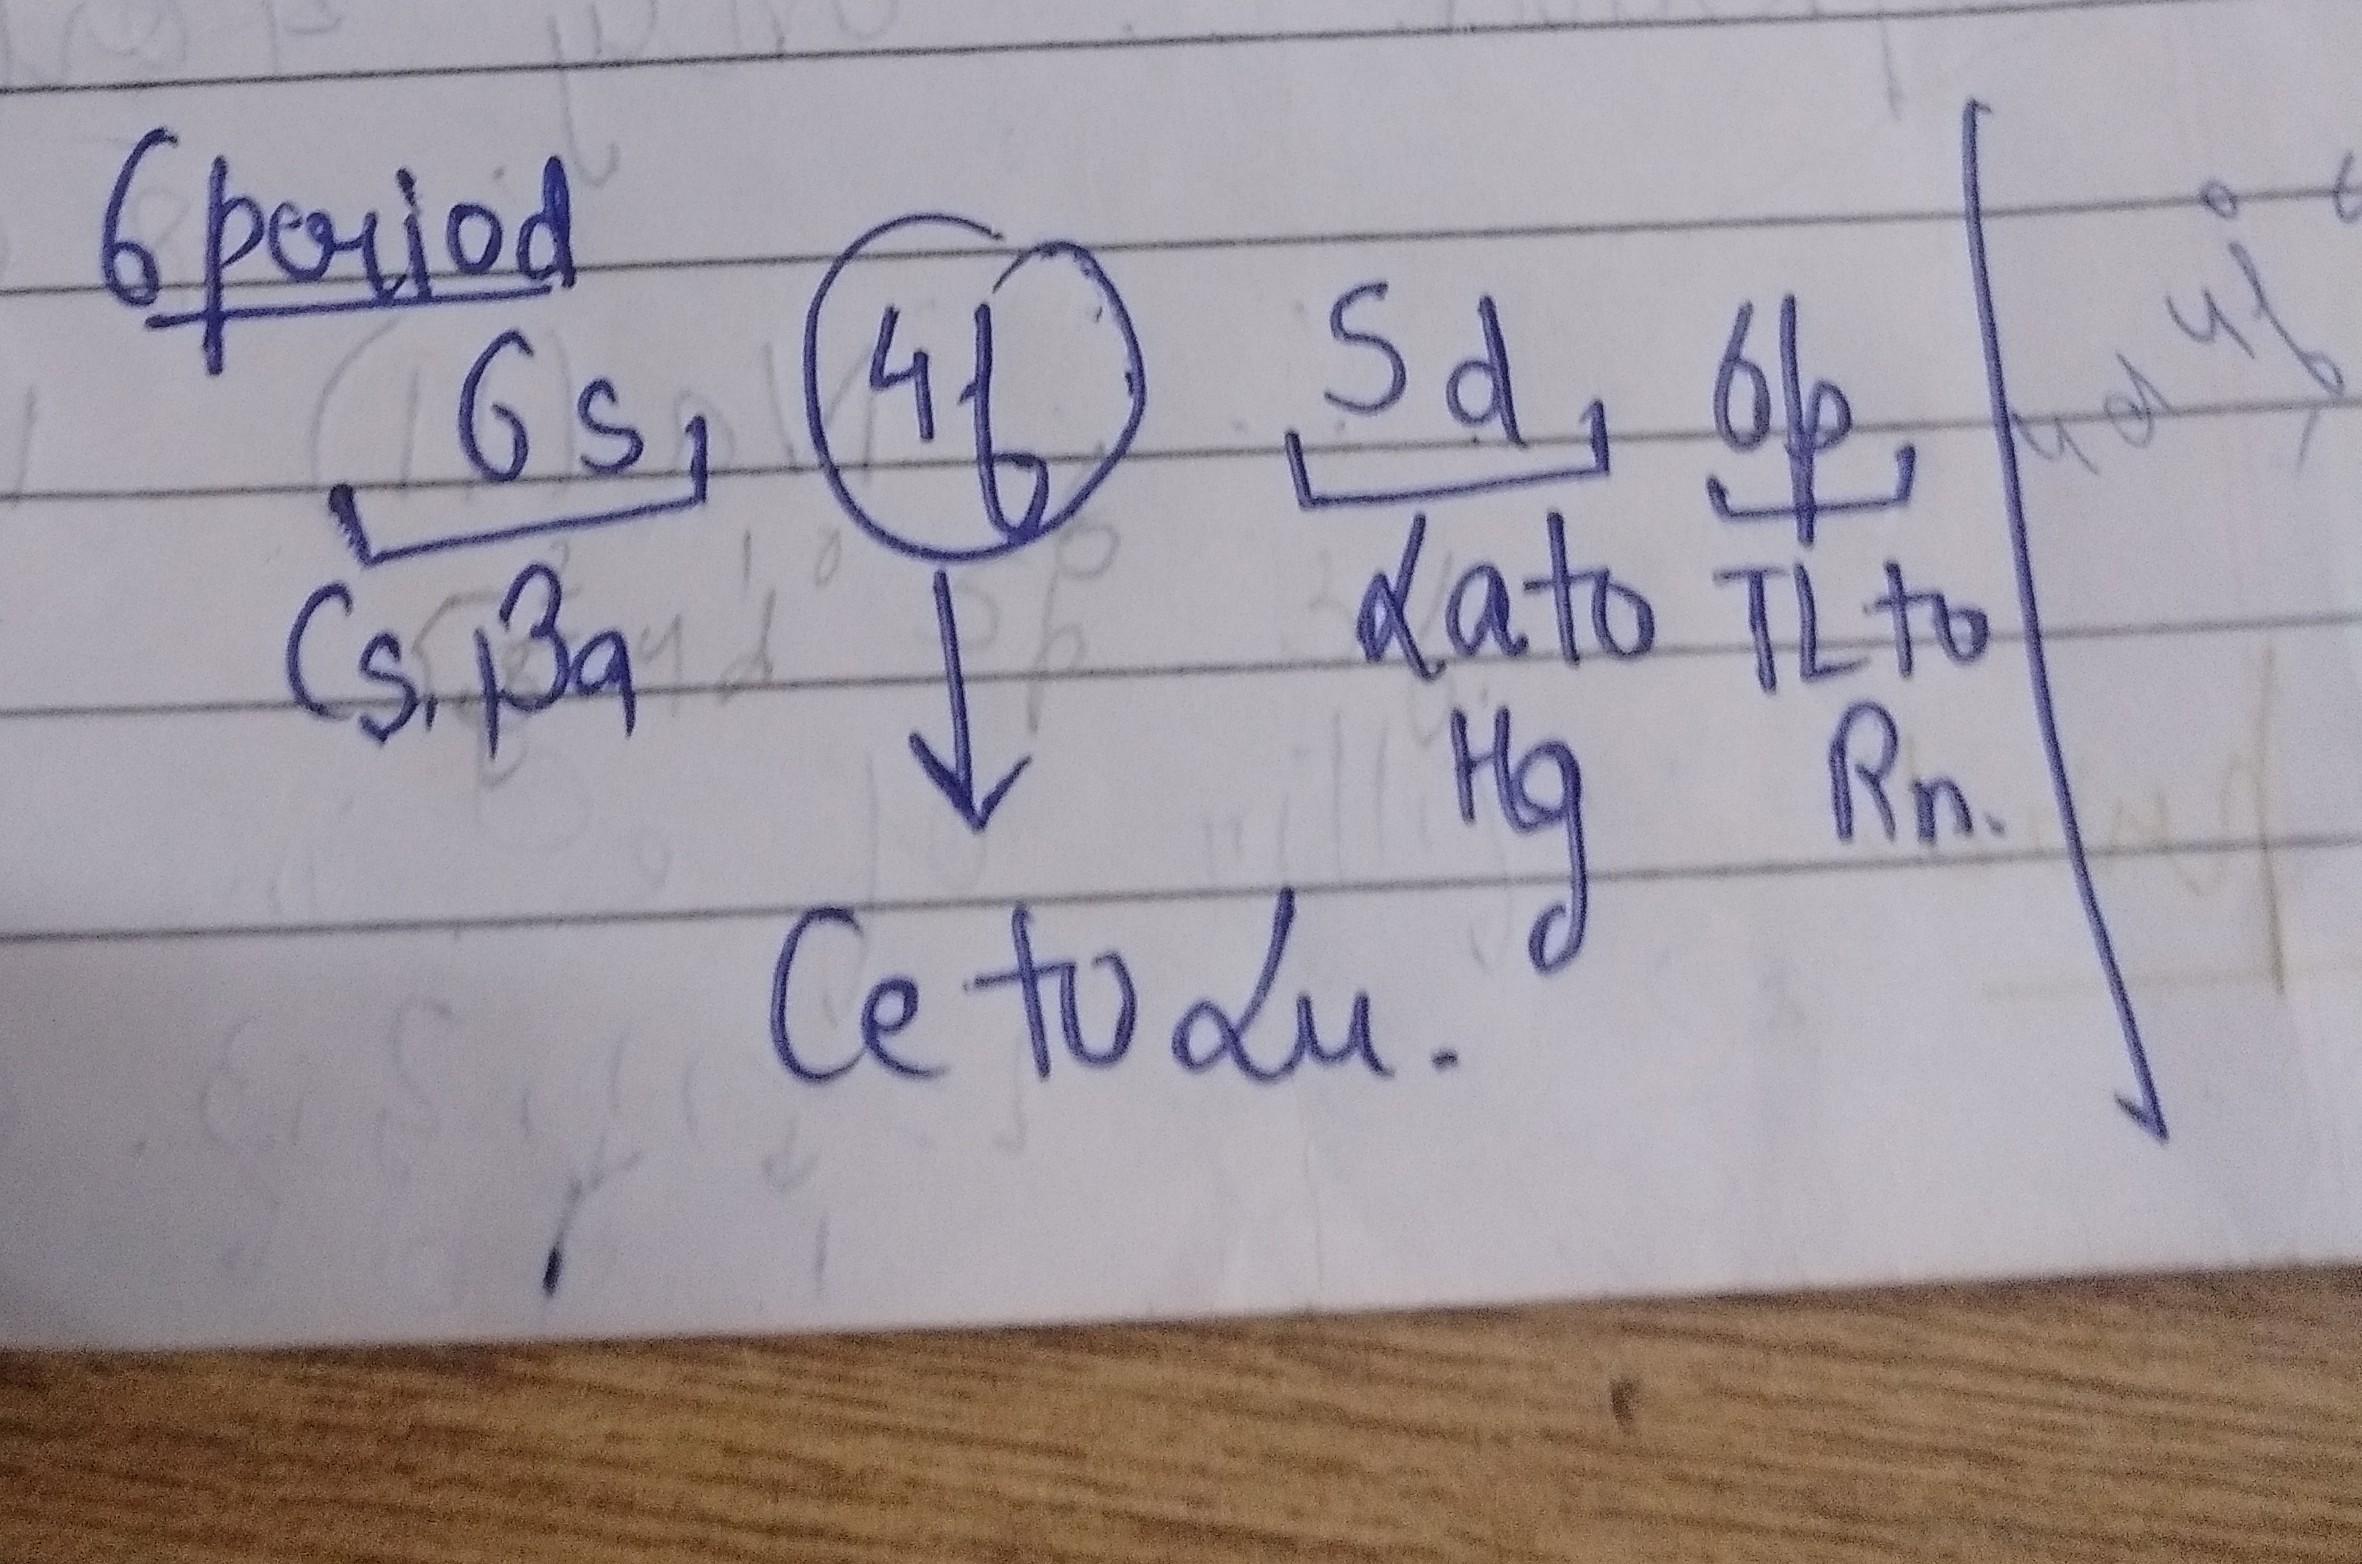 6 period
6s 4f 5d 6p
Cs, Ba La to TL to
Hg Rn.
Ce to Lu.